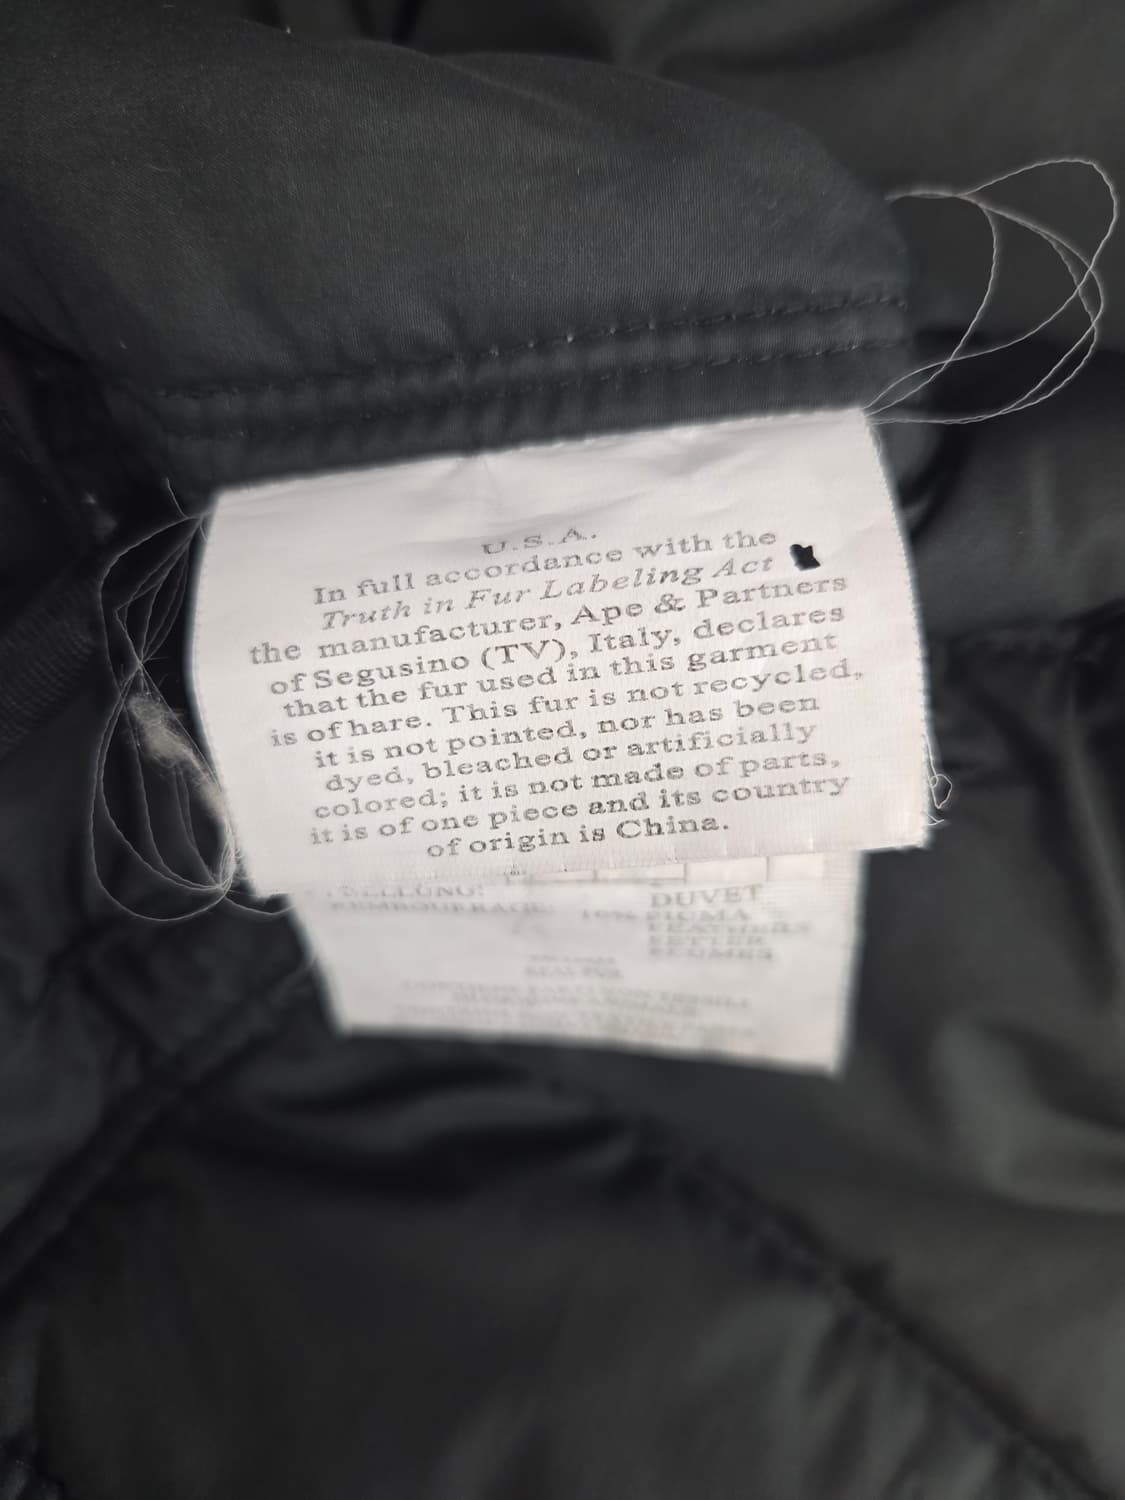 U.S.A.
In full accordance with the
Truth in Fur Labeling Act
the manufacturer, Ape & Partners
of Segusino (TV), Italy, declares
that the fur used in this garment
is of hare. This fur is not recycled,
it is not pointed, nor has been
dyed, bleached or artificially
colored; it is not made of parts,
it is of one piece and its country
of origin is China.
DUVET
REMBOURRAGE: 10% PIUMA
FEATHERS
FETTER
PLUMES